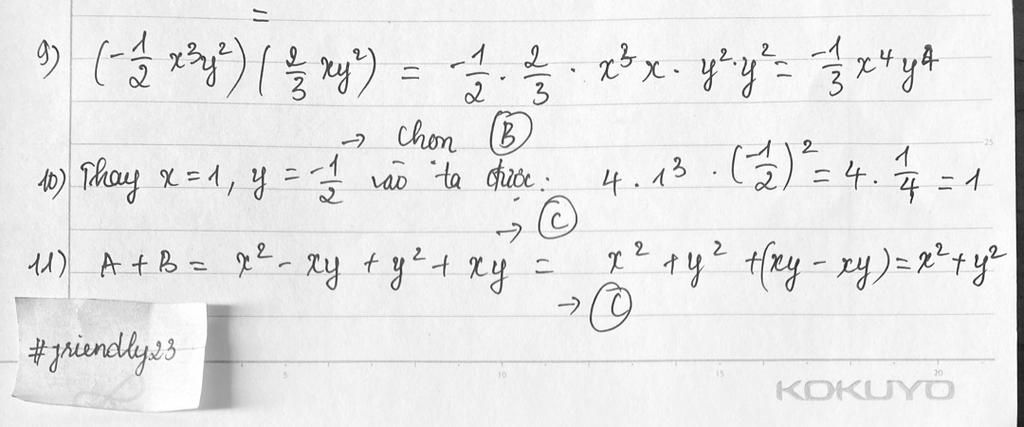 =
9) (-1/2 x³y²)(2/3 xy²) = -1/2 . 2/3 . x³x . y².y² = -1/3 x⁴y⁴
→ Chọn B
10) Thay x = 1, y = -1/2 vào ta được: 4 . 1³ . (-1/2)² = 4 . 1/4 = 1
→ C
11) A + B = x² - xy + y² + xy = x² + y² + (xy - xy) = x² + y²
→ C
#friendly23
5 10 15 20
25
KOKUYO